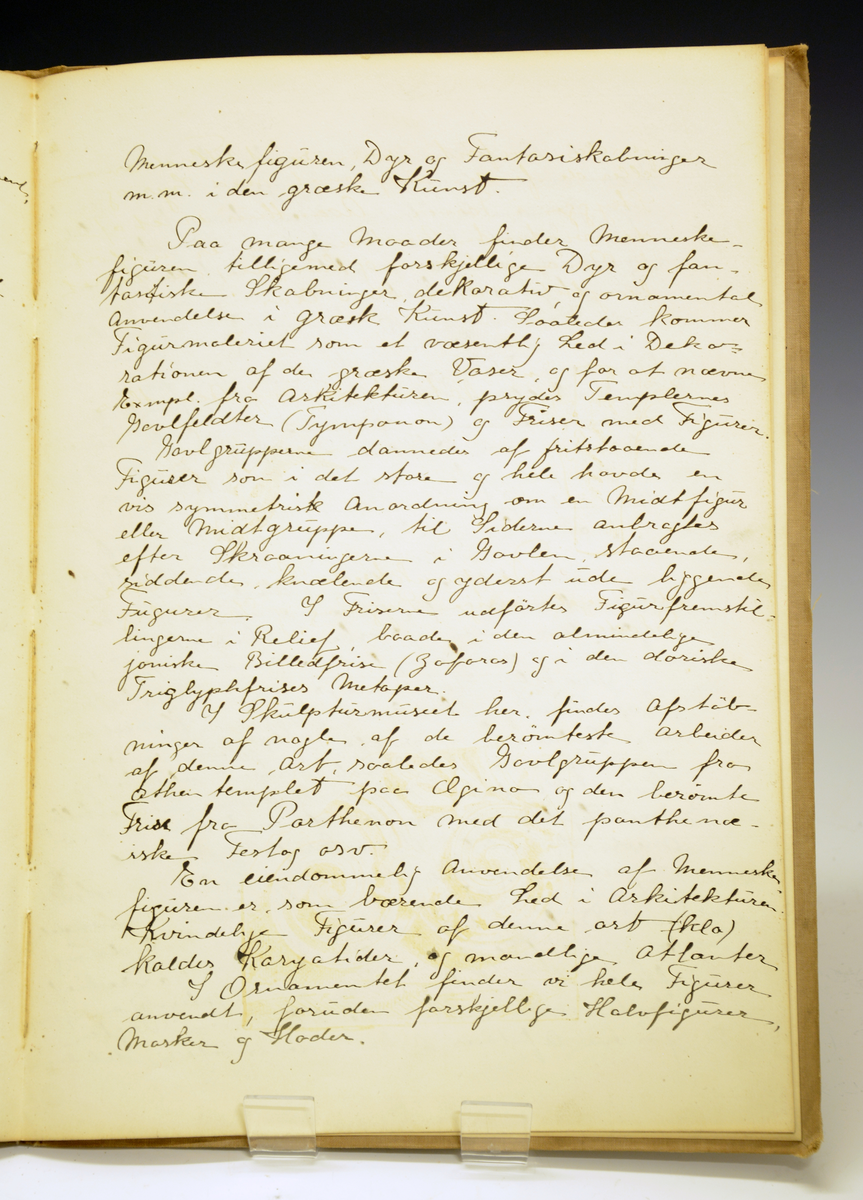 Menneskefiguren, Dyr og Fantasiskabninger
m.m. i den græske Kunst.
Paa mange Maader finder Menneske-
figuren tilligemed forskjellige Dyr og fan-
tastiske Skabninger, dekorativ og ornamental
Anvendelse i græsk Kunst. Saaledes kommer
Figurmateriet som et væsentlig Led i Deko-
rationen af de græske Vaser, og for at nævne
Exmpl. fra Arkitekturen, prydes Templernes
Gavlfeldter (Tympanon) og Friser med Figurer.
Gavlgrupperne dannedes af fritstaaende
Figurer som i det store og hele havde en
vis symmetrisk Anordning om en Midtfigur
eller Midtgruppe, til Siderne anbragtes
efter Skraaningerne i Gavlen, staaende,
siddende, knælende og yderst ude liggende
Fugurer. I Friserne udførtes Figurfremstil-
lingerne i Relief, baade i den almindelige
joniske Billedfrise (Zoforos) og i den doriske
Triglyphfrises Metoper.
I Skulpturmuseet her findes Afstøb-
ninger af nogle af de berømteste Arbeider
af denne Art, saaledes Gavlgruppen fra
Athenetemplet paa Ægina og den berømte
Frise fra Parthenon med det panthenæ-
iske Festog osv.
En eiendommelig Anvendelse af Menneske
figuren er som bærende Led i Arkitekturen.
Kvindelige Figurer af denne art (klo)
kaldes Karyatider, og mandlige Atlanter
I Ornamentet finder vi hele Figurer
anvendt, foruden forskjellige Halvfigurer,
Masker og Hoder.